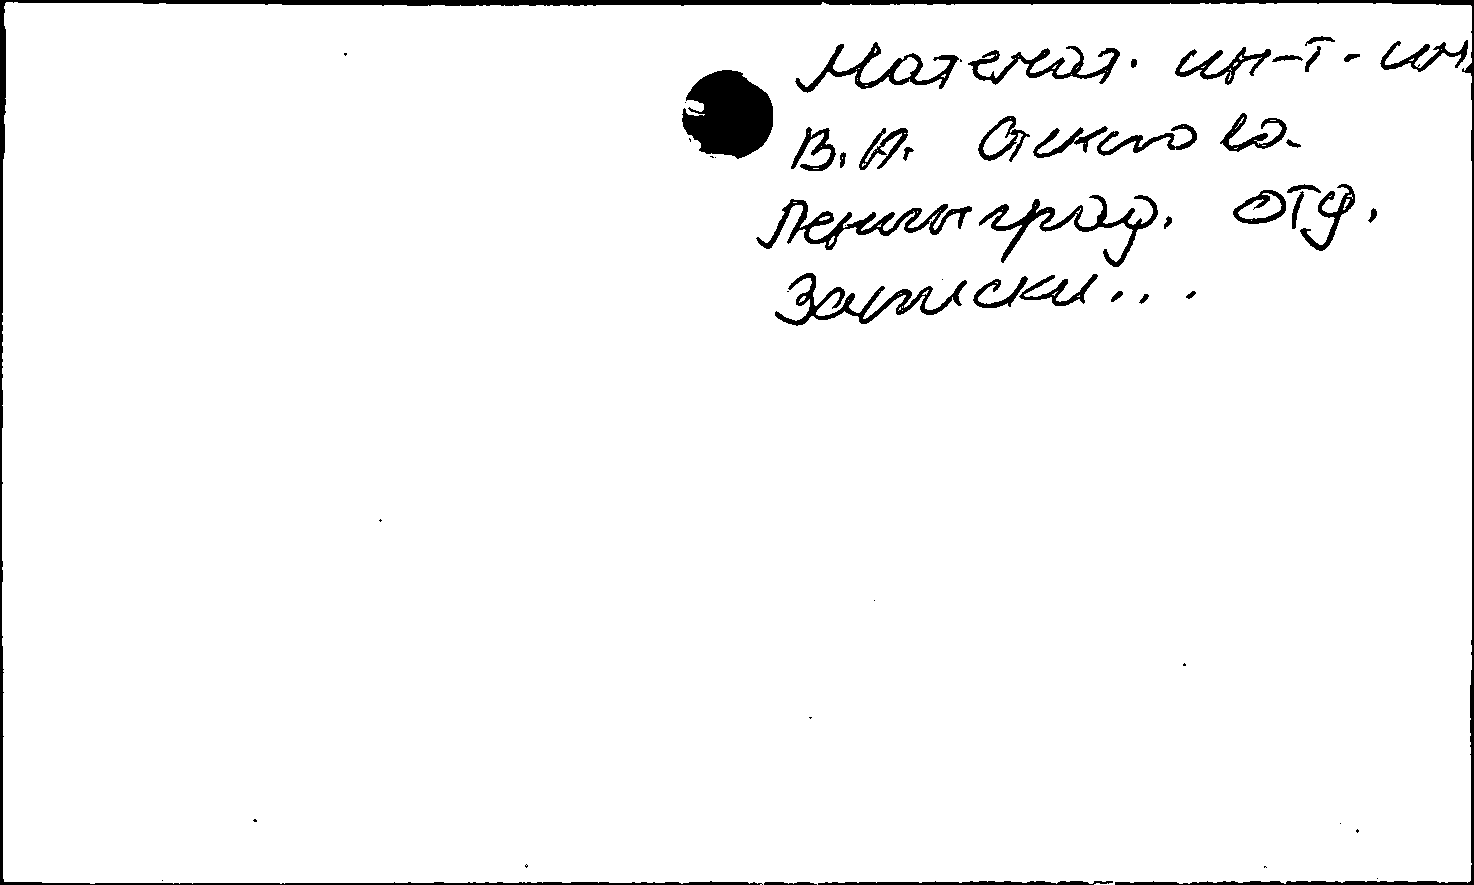 Математ. ин-т. им.
В. А. Стеклова.
Ленинград. отд.
Записки...